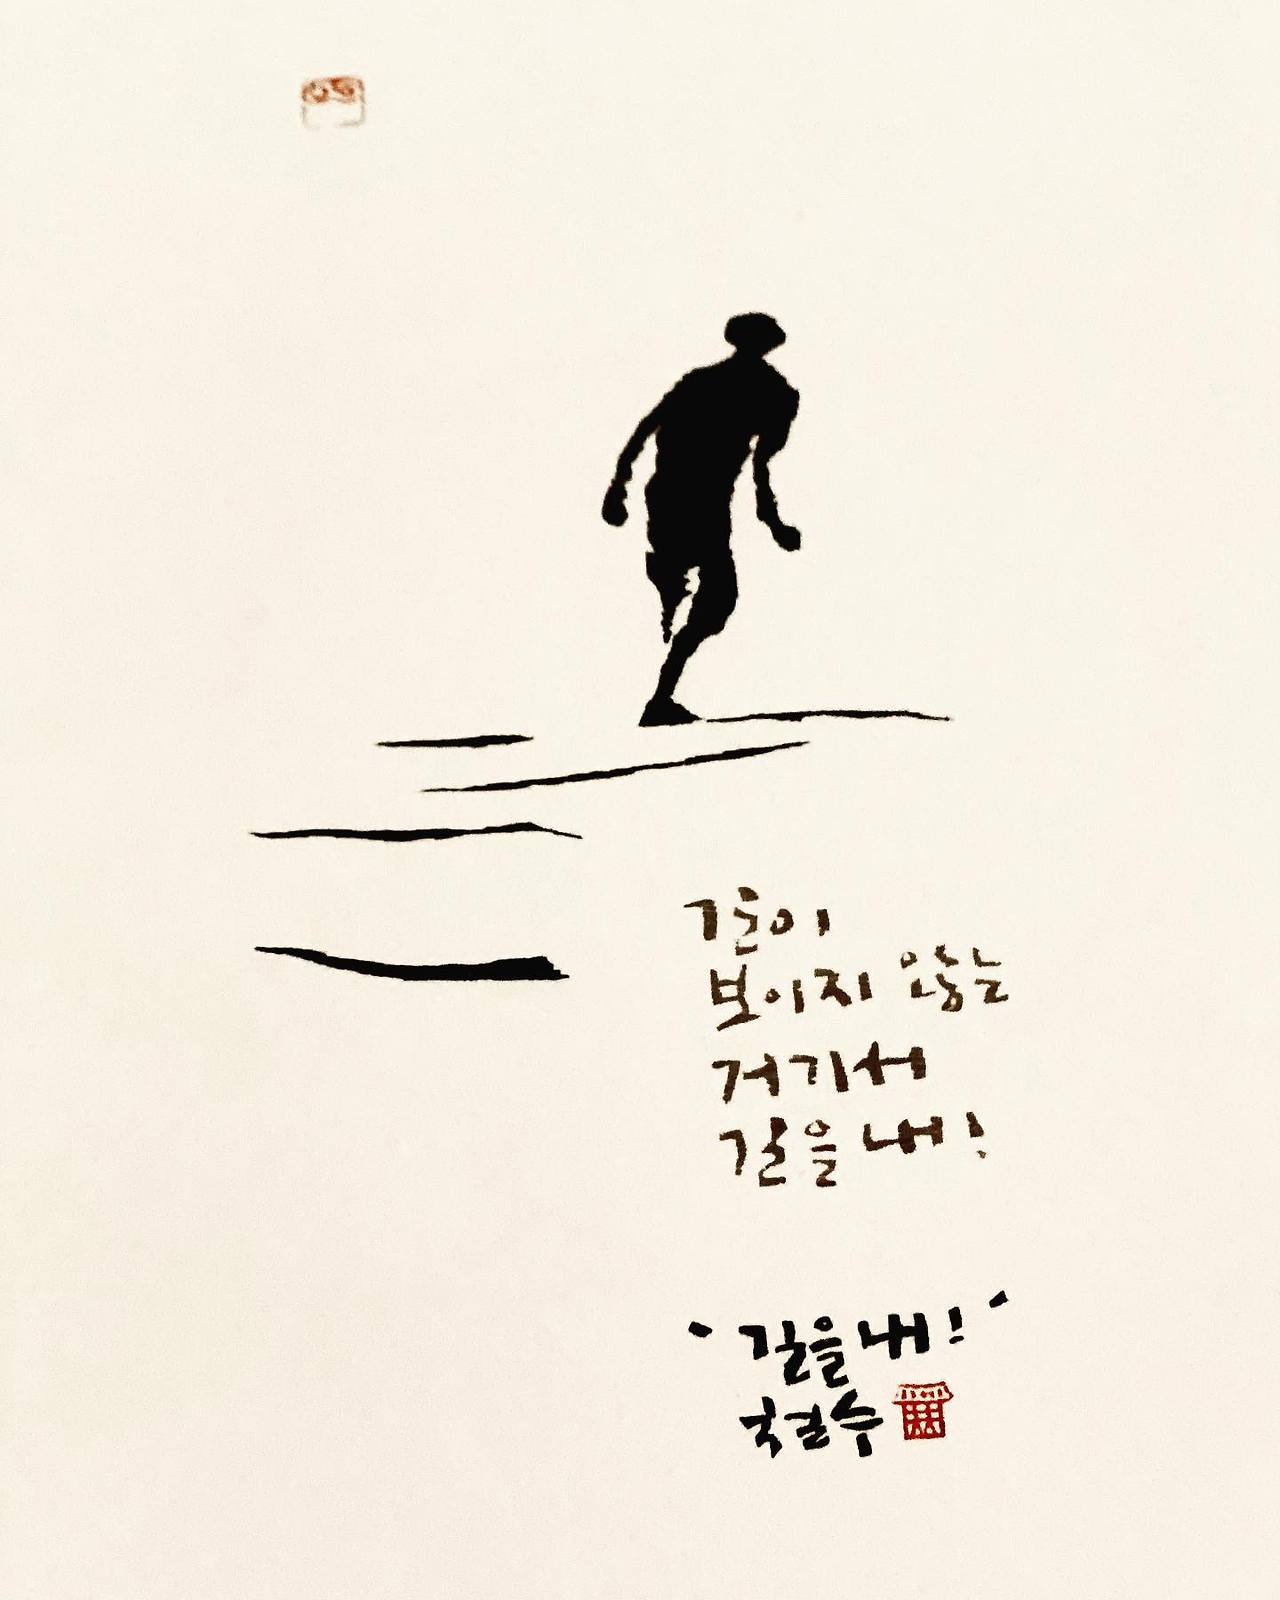 길이
보이지 않는
거기서
길을 내!
' 길을 내! '